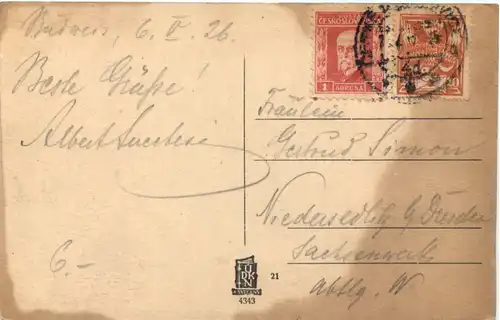 Budweis, 6. V. 26.
Beste Grüße!
Albert
6.-
ČESKOSLOVENSKO
1 KORUNA
Fräulein
Gertrud Simon
Niedersedlitz b/Dresden
Sachsenwerk
Abtlg. W
21
4343